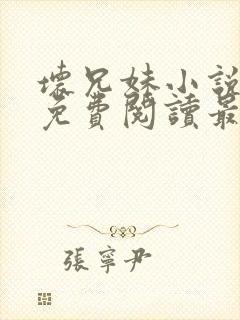 壞兄妹小說
免費閱讀最
張寧尹